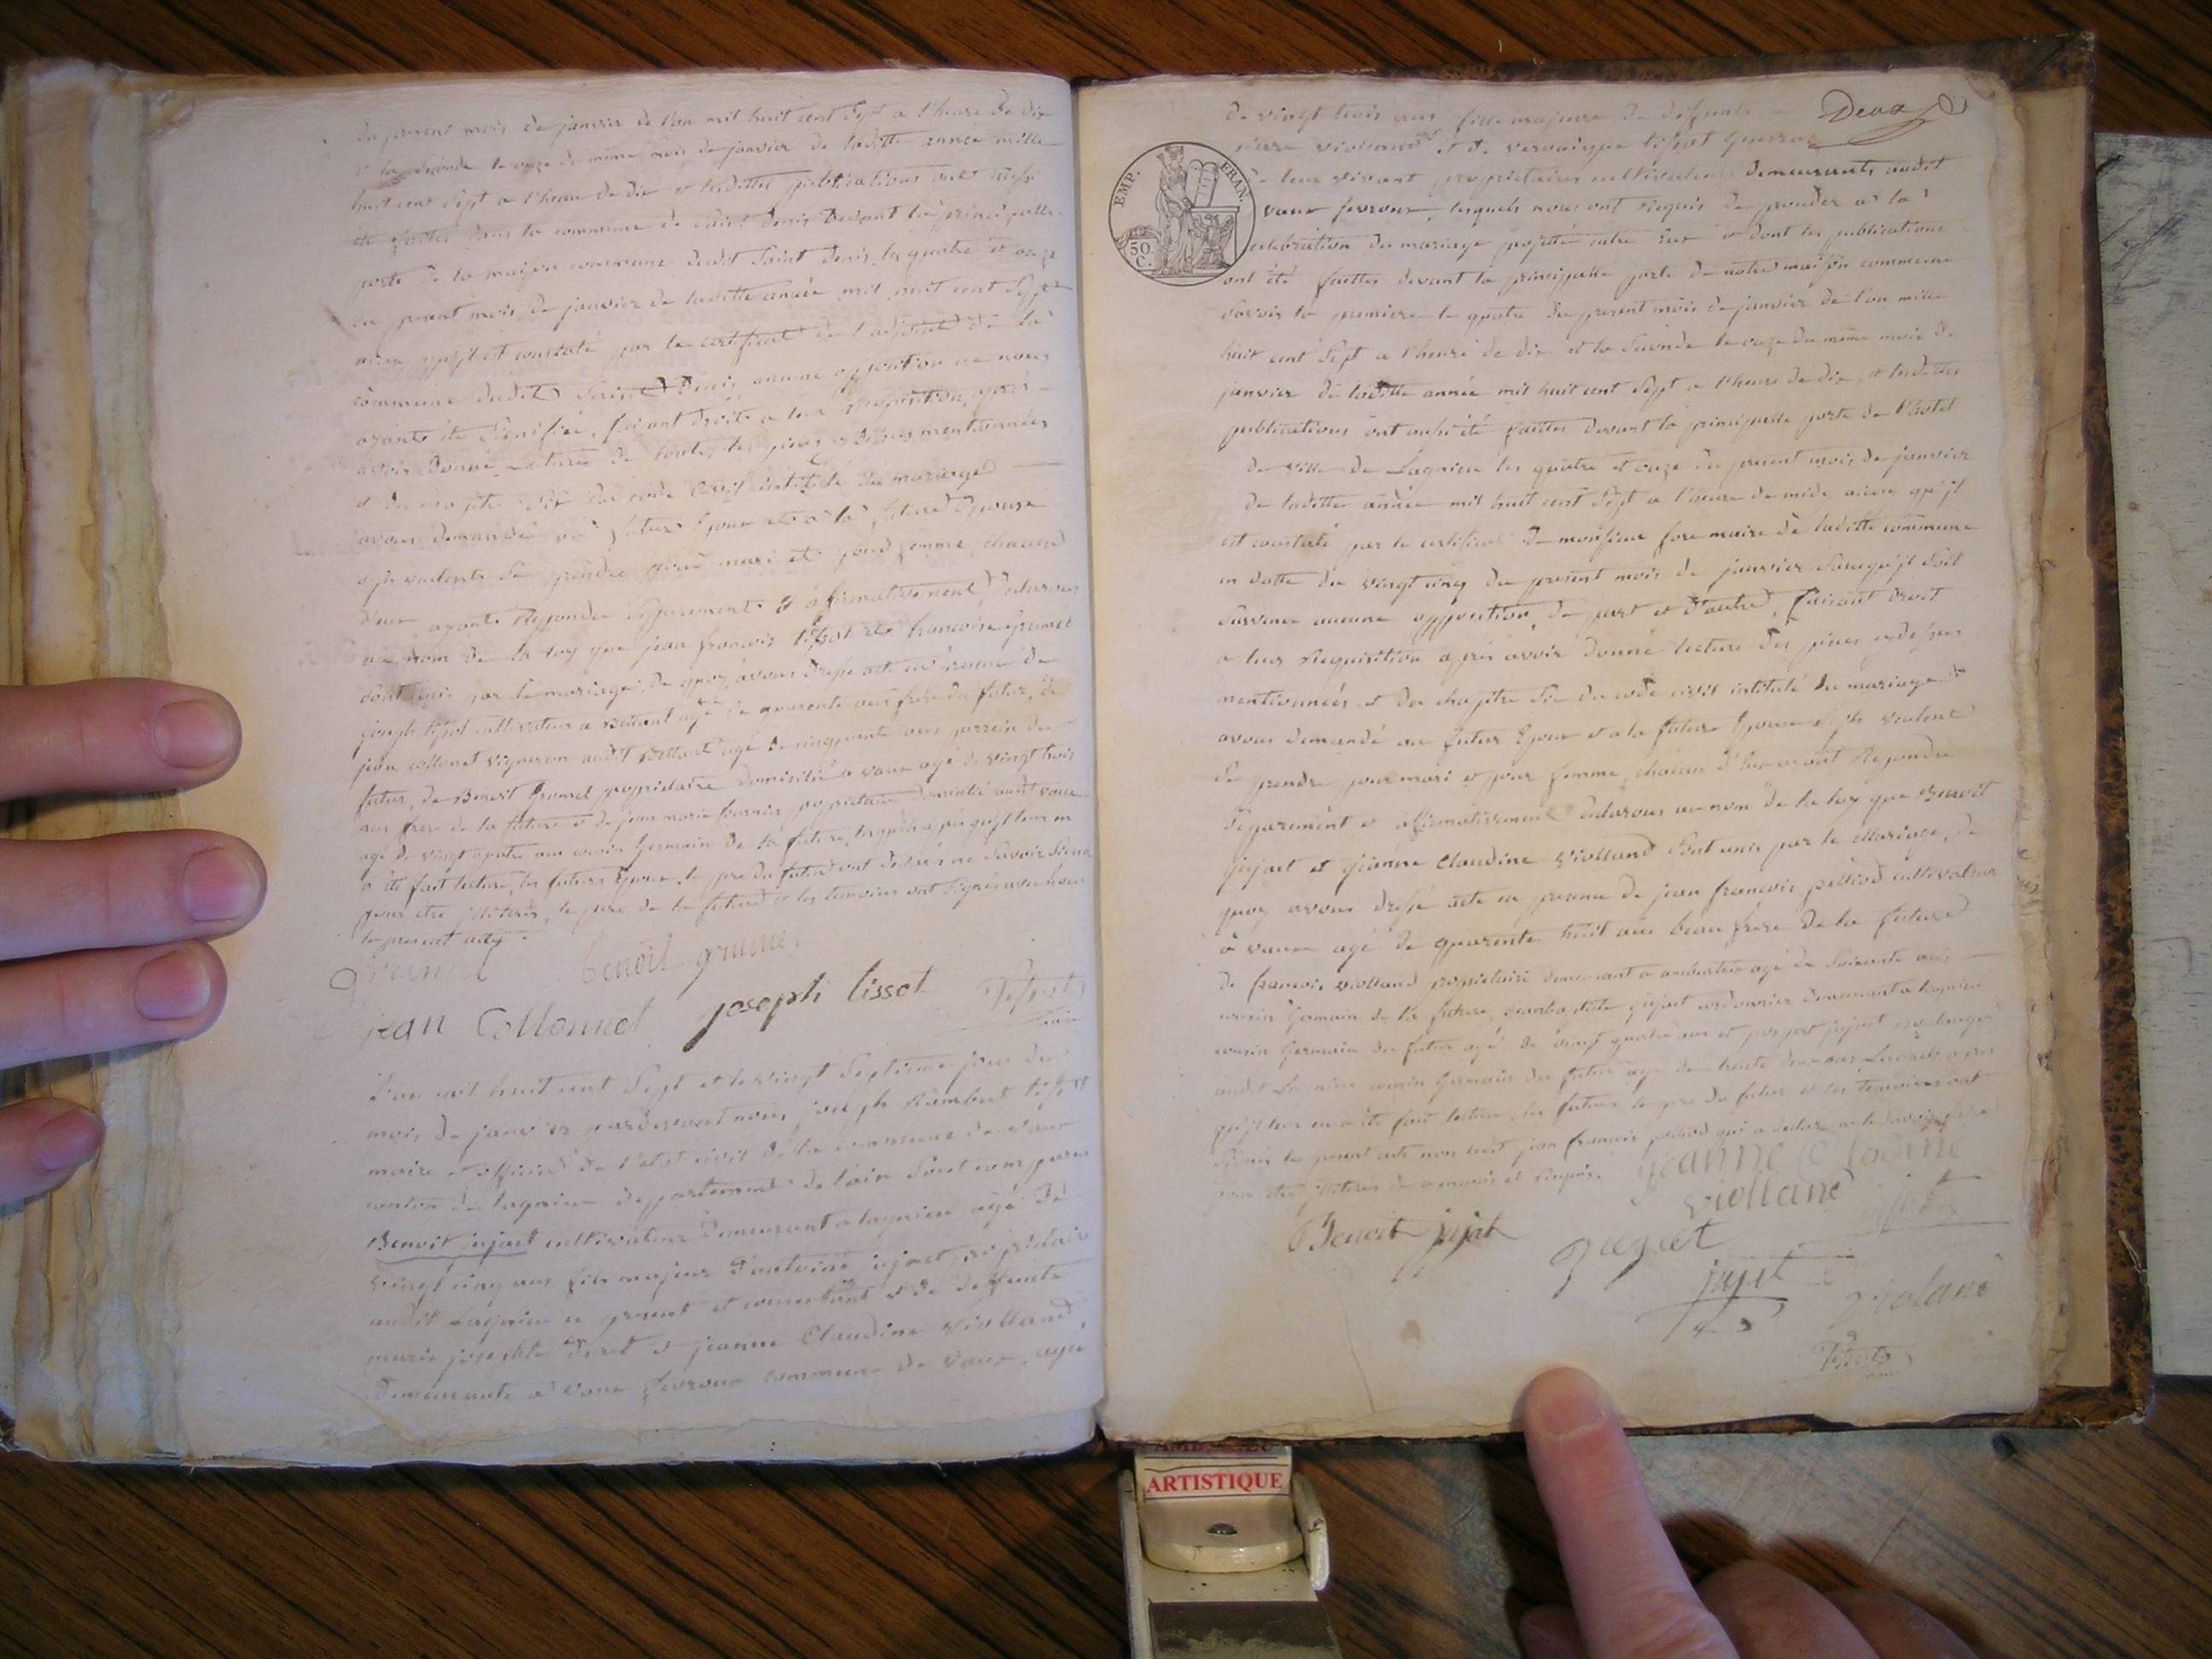 du present mois de janvier de l'an mil huit cent Sept a l'heure de dix
et la seconde le onze du même mois de janvier de laditte année mille
huit cent Sept a l'heure de dix et lesdittes publications ont aussi
été faites dans la commune de Saint Denis devant la principalle
porte de la maison commune dudit Saint Denis les quatre et onze
du present mois de janvier de laditte année mil huit cent Sept
constaté par le certificat de l'adjoint de la
commune dudit Saint Denis aucune opposition ne nous
ayants été Signifiée, faisant droits a leur requisition, après
avoir donné Lecture de toutes les pièces cydessus mentionnées
et du chapitre Six du code Civil intitulé du mariage
avons demandé au futur Epoux et a la future Epouse
s'jls veulents Se prendre pour mari et pour femme, chacun
d'eux ayants Repondu Separements & afirmativement, declarons
au nom de la loy que jean françois tissot et francoise grumet
sont unis par le mariage, de quoy avons dressé acte en presence de
joseph tissot cultivateur a Bettant agé de quarente ans frere du futur, de
jean collonet vigneron audit Bettant agé de cinquante ans parrein du
futur, de Benoit Grumel propriétaire domicilié a vaux agé de vingt trois
ans frere de la future et de jean marie fournier propriétaire domicilié audit vaux
agé de vingt quatre ans cousin Germain de la future, lesquels apres qu'jl leur en
a été fait lecture, les futurs Epoux, le pere du futur ont declarés ne Savoir Signer
pour etre jlliterés, le pere de la future & les temoins ont Signés avec nous
le present acte.
benoit grumel
jean Collonnet joseph tissot Tissot
maire
L'an mil huit cent Sept et le vingt Septieme jour du
mois de janvier pardevant nous joseph Rambert tissot
maire et officier de l'etat civil de la commune de vaux
canton de lagnieu departement de l'ain Sont comparus
Benoit jujat cultivateur demeurant a lagnieu agé de
vingt cinq ans fils majeur d'antoine jujat propriétaire
audit Lagnieu cy present et consentant et de deffunte
marie josephte & jeanne Claudine violland,
demeurante a vaux fevroux commune de vaux, agée
Deux
de vingt trois ans fille majeure de defunts
violland et de tissot
de leur vivant propriétaires cultivateurs demeurants audit
vaux fevroux, lesquels nous ont requis de proceder a la
celebration du mariage projetté entre Eux et dont les publications
ont été faittes devant la principalle porte de notre maison commune
savoir la premiere le quatre du present mois de janvier de l'an mille
huit cent Sept a l'heure de dix et la Seconde le onze du meme mois de
janvier de laditte année mil huit cent Sept a l'heure de dix, et lesdittes
publications ont aussi été faittes devant la principalle porte de l'hotel
de ville de Lagnieu les quatre et onze du present mois de janvier
de laditte année mil huit cent Sept a l'heure de midy ainsy qu'jl
est constaté par le certificat de monsieur fore maire de laditte commune
en datte du vingt cinq du present mois de janvier Sans qu'jl Soit
Survenu aucune opposition, de part et d'autre, faisant droit
a leur Requisition après avoir donné lecture des pièces cydessus
mentionnées et du chapitre Six du code civil intitulé du mariage
avons demandé au futur Epoux et a la future Epouse s'jls veulent
Se prendre pour mari et pour femme, chacun d'Eux ayant Repondu
Separement et affirmativement declarons au nom de la loy que Benoit
jujat et jeanne Claudine violland Sont unis par le Mariage, de
quoy avons dressé acte en presence de jean francois cultivateur
a vaux agé de quarente huit ans beau frere de la future
de francois violland propriétaire demeurant a ambutrix agé de Soixante ans
cousin Germain de la future, jeanbaptiste jujat cordonnier demeurant a lagnieu
cousin Germain du futur agé de vingt quatre ans et jujat boulanger
audit Lagnieu cousin Germain du futur agé de trente deux ans, Lesquels apres
qu'jl leur en a été fait lecture, les futurs le pere du futur et les temoins ont
Signés le present acte non ledit jean francois qui a declaré ne le Savoir faire
pour etre jlliterés de ce enquis et requis.
jeanne Claudine
violland
Benoit jujat jujat
jujat violand
Tissot
maire
EMP. FRAN.
50
C.
ARTISTIQUE